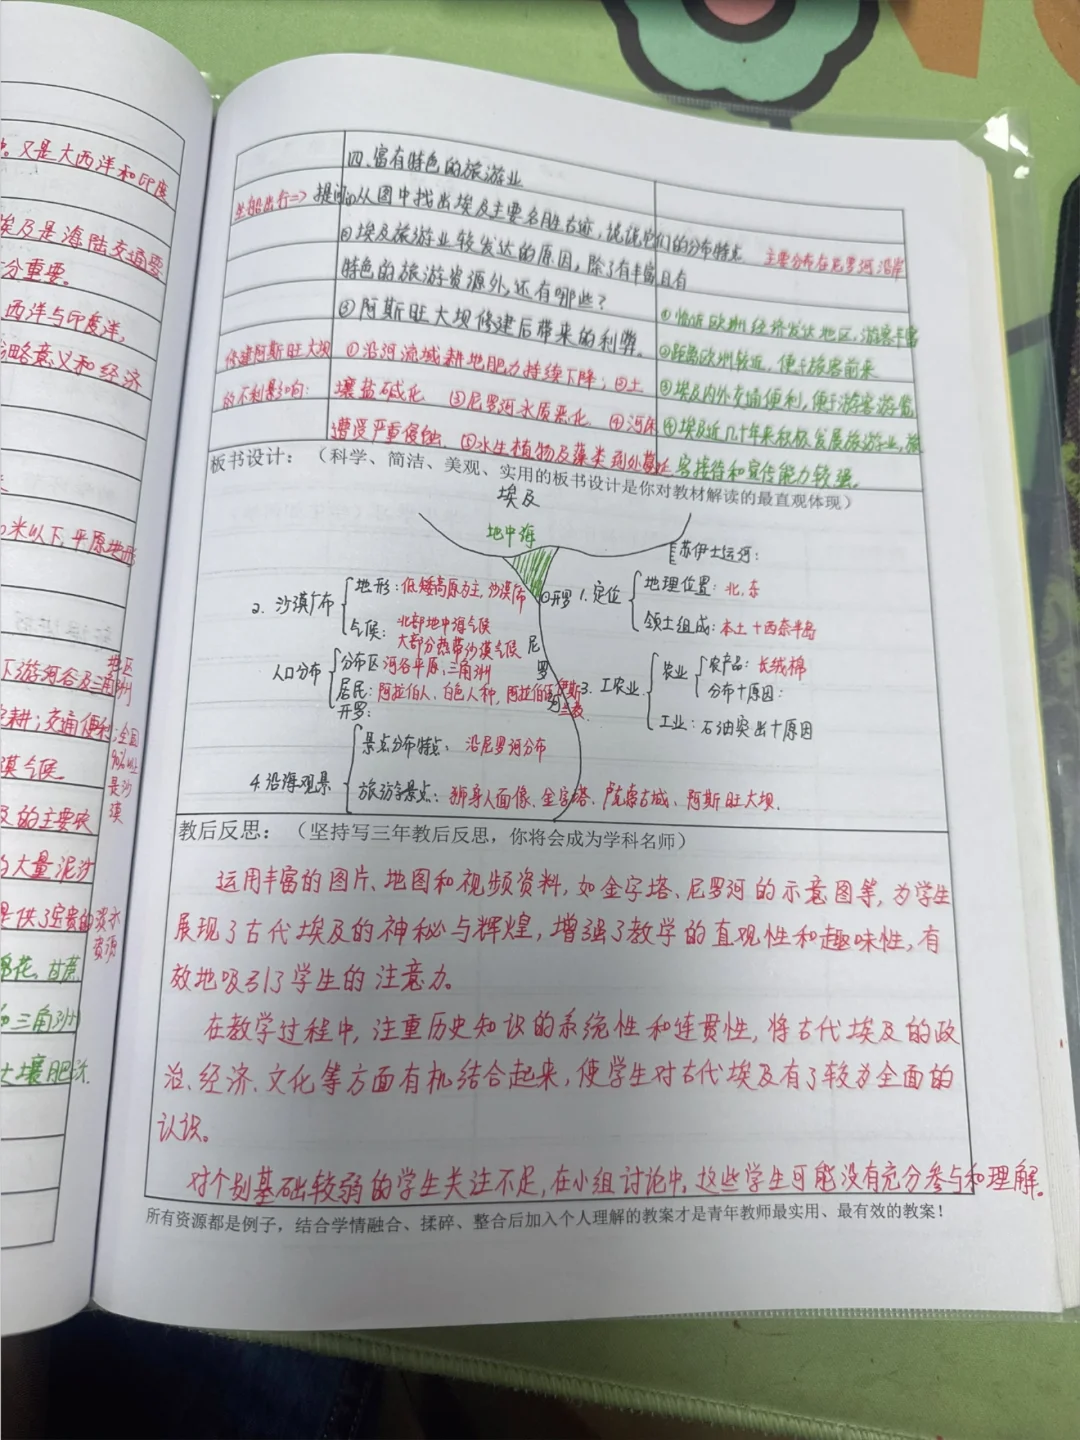 又是大西洋和印度
埃及是海陆交通要
分重要。
西洋与印度洋,
战略意义和经济
米以下,平原地形
下游河谷及三角洲
地区
耕;交通便利
全国
90%以上
是沙
漠
漠气候
及的主要农
的大量泥沙
提供了宝贵的淡水
资源
棉花、甘蔗
三角洲
土壤肥沃.
四.富有特色的旅游业
坐船出行=> 提问①从图中找出埃及主要名胜古迹,说说它们的分布特点 主要分布在尼罗河沿岸
②埃及旅游业较发达的原因,除了有丰富且有
特色的旅游资源外,还有哪些?
①临近欧洲经济发达地区,游客丰富
③阿斯旺大坝修建后带来的利弊.
②距离欧洲较近,便于旅客前来
修建阿斯旺大坝 ①沿河流域耕地肥力持续下降;②土
③埃及内外交通便利,便于游客游览
的不利影响: 壤盐碱化 ③尼罗河水质恶化 ④河床
④埃及近几十年来积极发展旅游业,旅
遭受严重侵蚀 ⑤水生植物及藻类到处蔓延
客接待和宣传能力较强.
板书设计:(科学、简洁、美观、实用的板书设计是你对教材解读的最直观体现)
埃及
地中海
苏伊士运河:
2. 沙漠广布 地形:低矮高原为主,沙漠广布
气候:北部地中海气候
大部分热带沙漠气候
开罗
1.定位 地理位置:北,东
领土组成:本土+西奈半岛
尼
罗
河
人口分布 分布区 河谷平原,三角洲
居民:阿拉伯人、白色人种,阿拉伯语,伊斯
兰教
开罗:
3. 工农业 农业 农产品:长绒棉
分布+原因:
工业:石油突出+原因
4.沿海观景 景点分布特点:沿尼罗河分布
旅游景点:狮身人面像、金字塔、卢克索古城、阿斯旺大坝.
教后反思:(坚持写三年教后反思,你将会成为学科名师)
运用丰富的图片、地图和视频资料,如金字塔、尼罗河的示意图等,为学生
展现了古代埃及的神秘与辉煌,增强了教学的直观性和趣味性,有
效地吸引了学生的注意力。
在教学过程中,注重历史知识的系统性和连贯性,将古代埃及的政
治、经济、文化等方面有机结合起来,使学生对古代埃及有了较为全面的
认识。
对个别基础较弱的学生关注不足,在小组讨论中,这些学生可能没有充分参与和理解。
所有资源都是例子,结合学情融合、揉碎、整合后加入个人理解的教案才是青年教师最实用、最有效的教案!